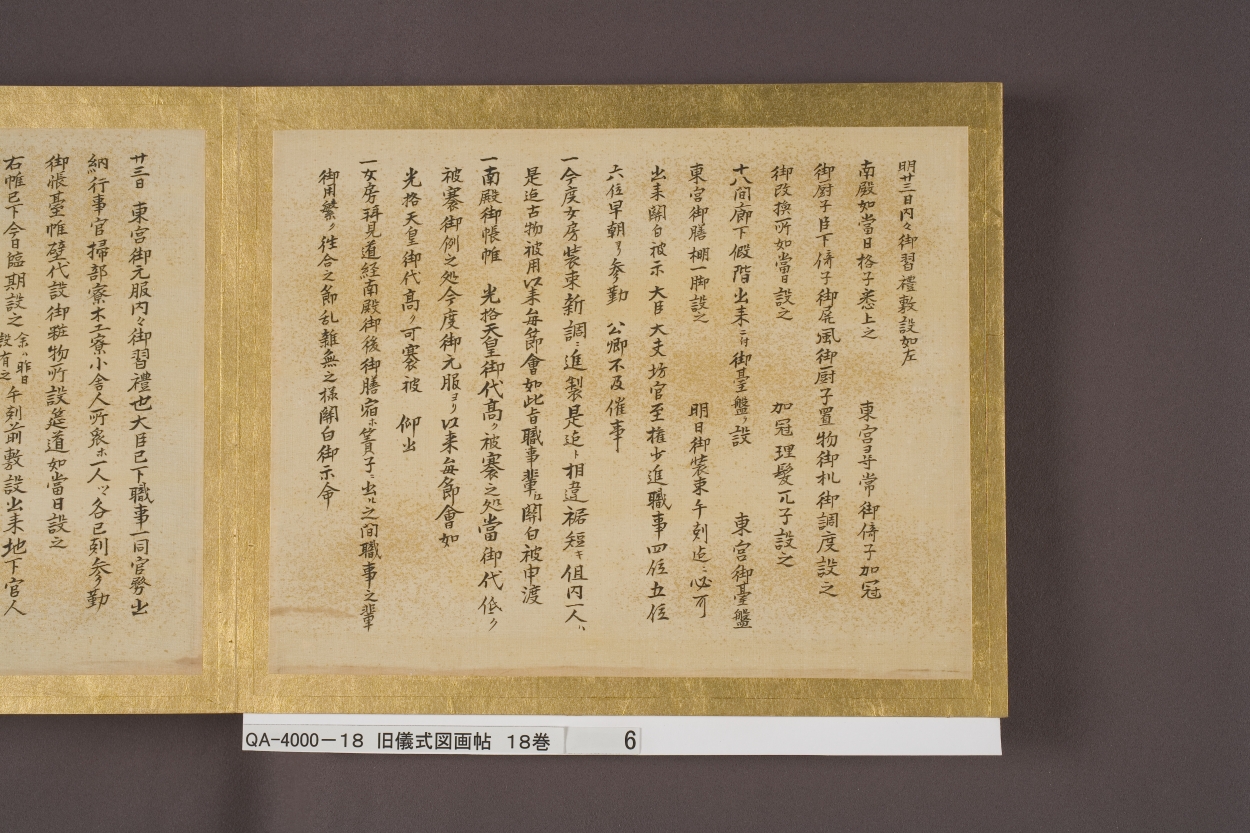 明廿三日内々御習禮敷設如左
南殿如當日格子悉上之　東宮ヨ尋常御倚子加冠
御厨子臣下倚子御屏風御厨子置物御札御調度設之
御改換所如當日設之　加冠理髪兀子設之
十八間廊下假階出来ニ付御臺盤ヲ設　東宮御臺盤
東宮御膳棚一脚設之　明日御装束午剋迄ニ必可
出来關白被示　大臣大夫坊官至権少進職事四位五位
六位早朝ヨリ参勤　公卿不及催事
一今度女房装束新調ニ進製是迄ト相違裾短キ但内一人ハ
是迄古物被用以来毎節會如此旨職事輩江關白被申渡
一南殿御帳帷　光格天皇御代高ク被褰之処當御代低ク
被褰御例之処今度御元服ヨリ以来毎節會如
光格天皇御代高ク可褰被　仰出
一女房拜見道経南殿御後御膳宿ホ簀子ニ出ル之間職事之輩
御用繁ク往合之節乱雜無之様關白御示命
廿三日　東宮御元服内々御習禮也大臣已下職事一同官勞出
納行事官掃部寮木工寮小舎人所衆ホ一人ツヽ各巳剋参勤
御帳臺帷壁代設御粧物所設筵道如當日設之
右帷已下今日臨期設之 余ハ昨日 設有之 午剋前敷設出来地下官人
QA-4000-18　旧儀式図画帖　18巻　6